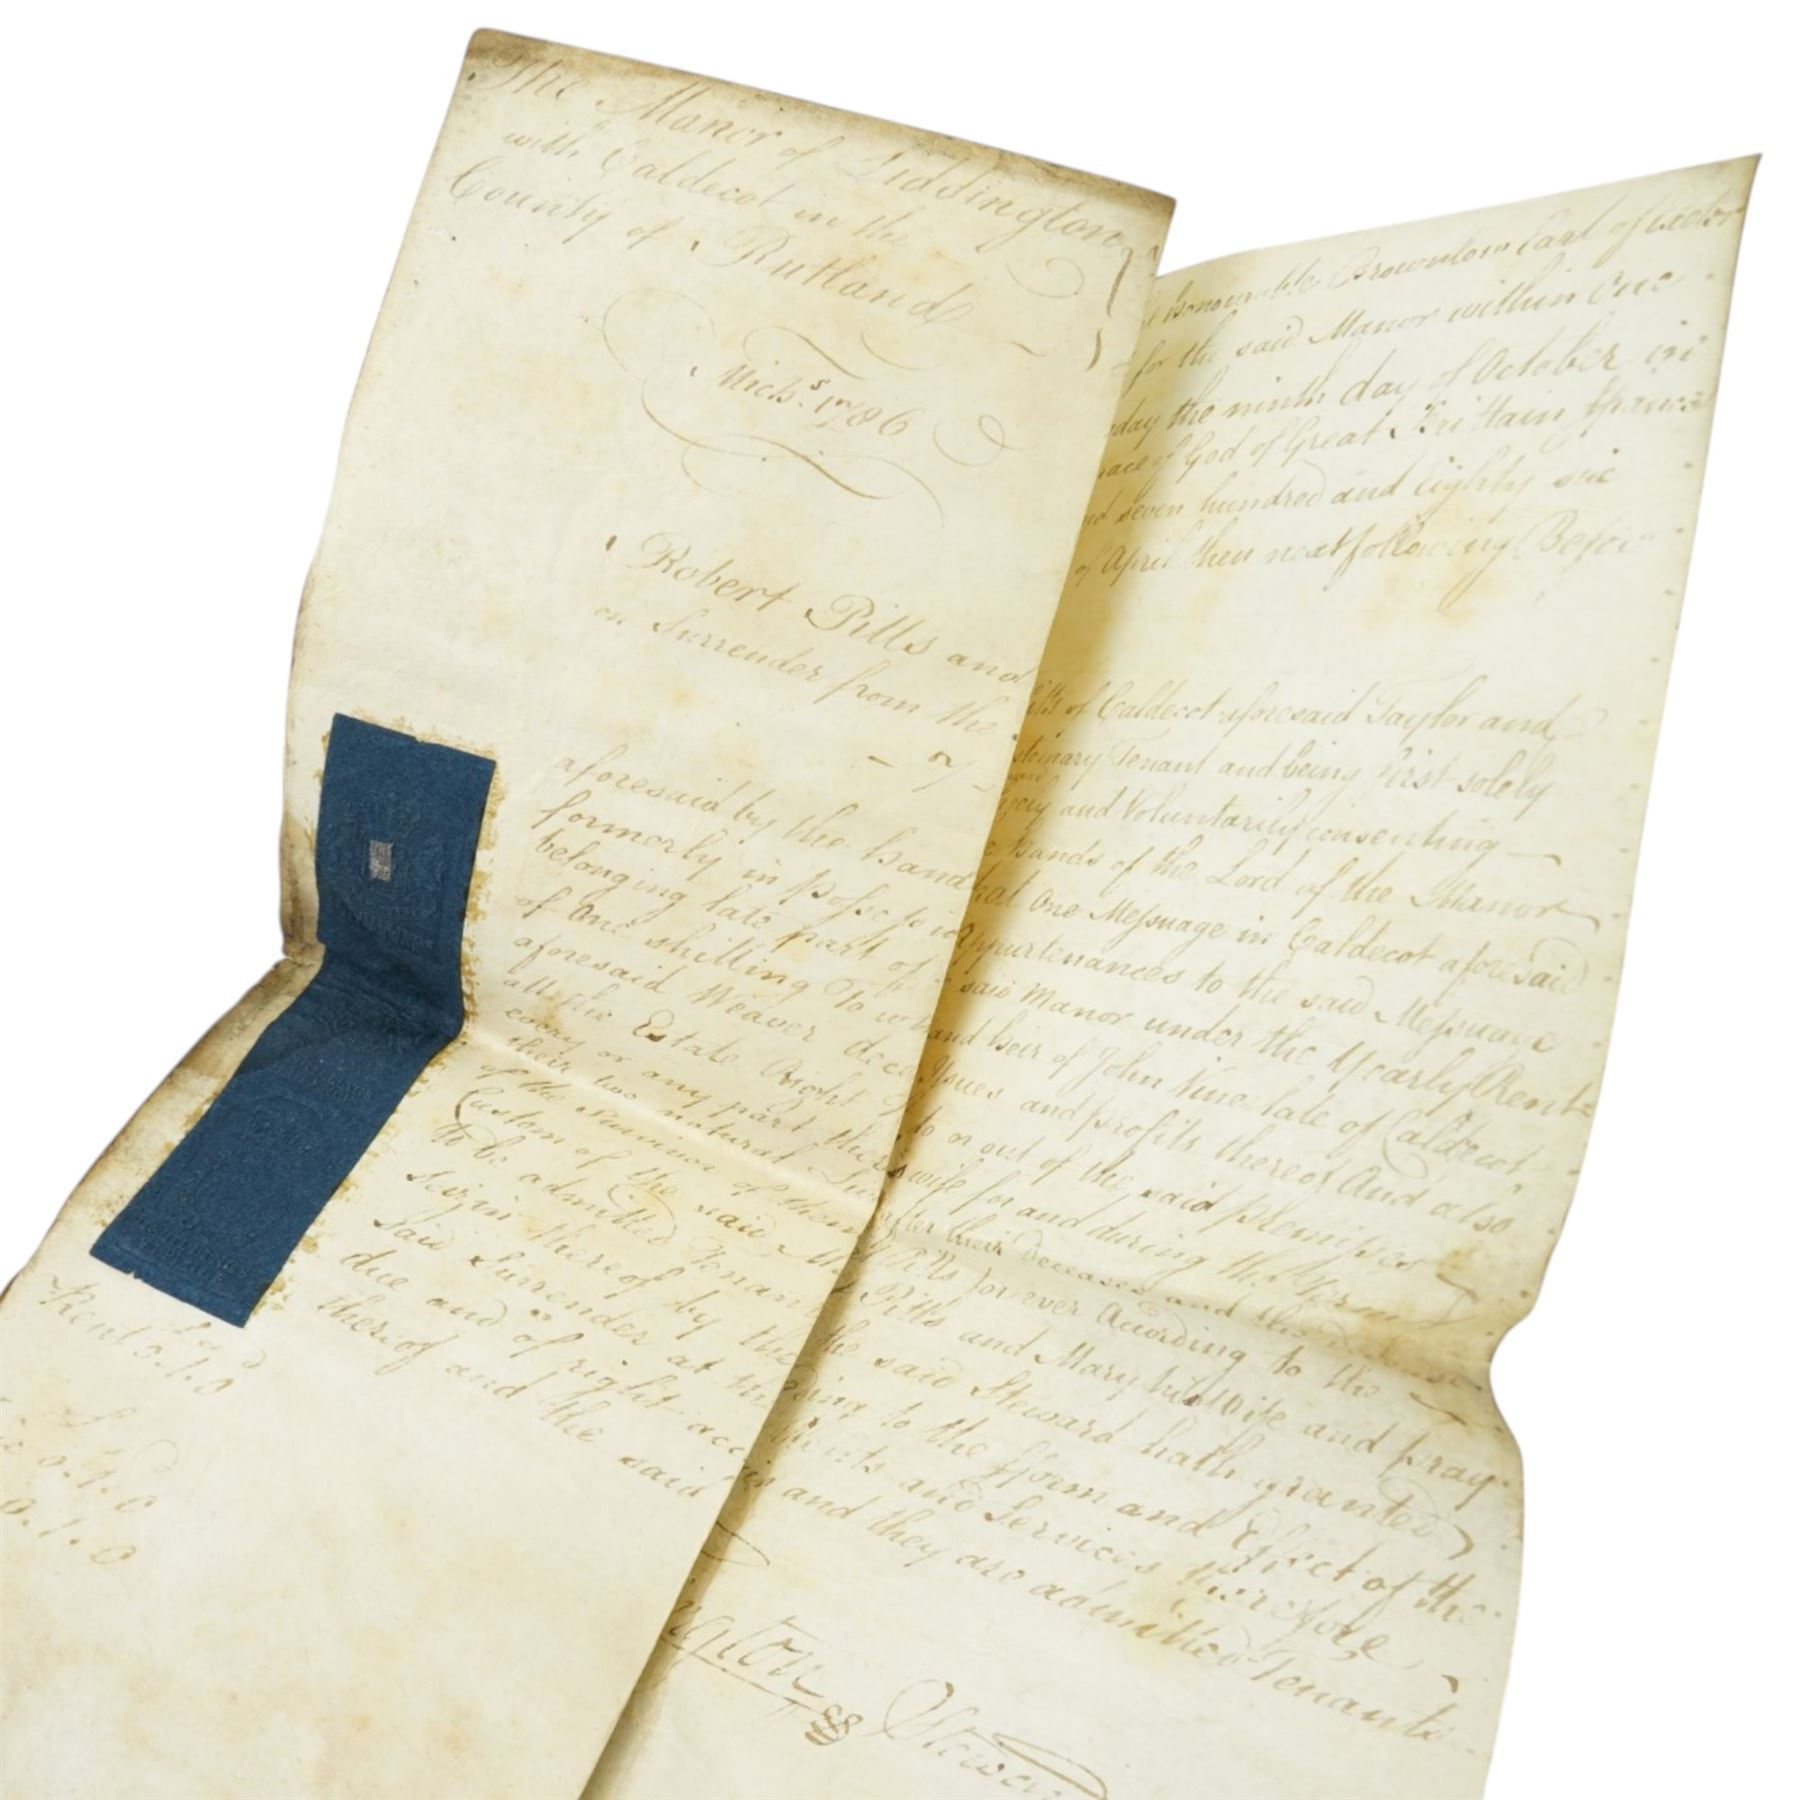 The Manor of Liddington
with Caldecot in the
County of Rutland
Michs. 1786
Robert Pitts and
on Surrender from the
aforesaid by the hand
formerly in possessio
belonging late part of
of One shilling To
aforesaid Weaver dece
all the Estate Right
every or any part there
their two natural
of the survivor of them
Custom of the said
to be admitted Tenan
seizin thereof by the
said Surrender at
due and of right acc
thereof and the said
Rent 0.1.0
0.1.0
0.1.0
honourable Brownlow Earl of
for the said Manor within one
day the ninth day of October in
race of God of Great Brittain France
nd seven hundred and Eighty six
of April then next following Before
itts of Caldecot aforesaid Taylor and
stomary Tenant and being first solely
and Voluntarily consenting
e hands of the Lord of the Manor
hat One Messuage in Caldecot aforesaid
Appurtenances to the said Messuage
said Manor under the Yearly Rent
and heir of John Vine late of Caldecot
Issues and profits thereof And also
to or out of the said premisses
wife for and during the Term
after their decease and the
Pitts for ever According to the
Pitts and Mary his Wife and pray
the said Steward hath granted
ding to the fform and Effect of the
ents and Services therefore
and they are admitted Tenants
gton
Steward